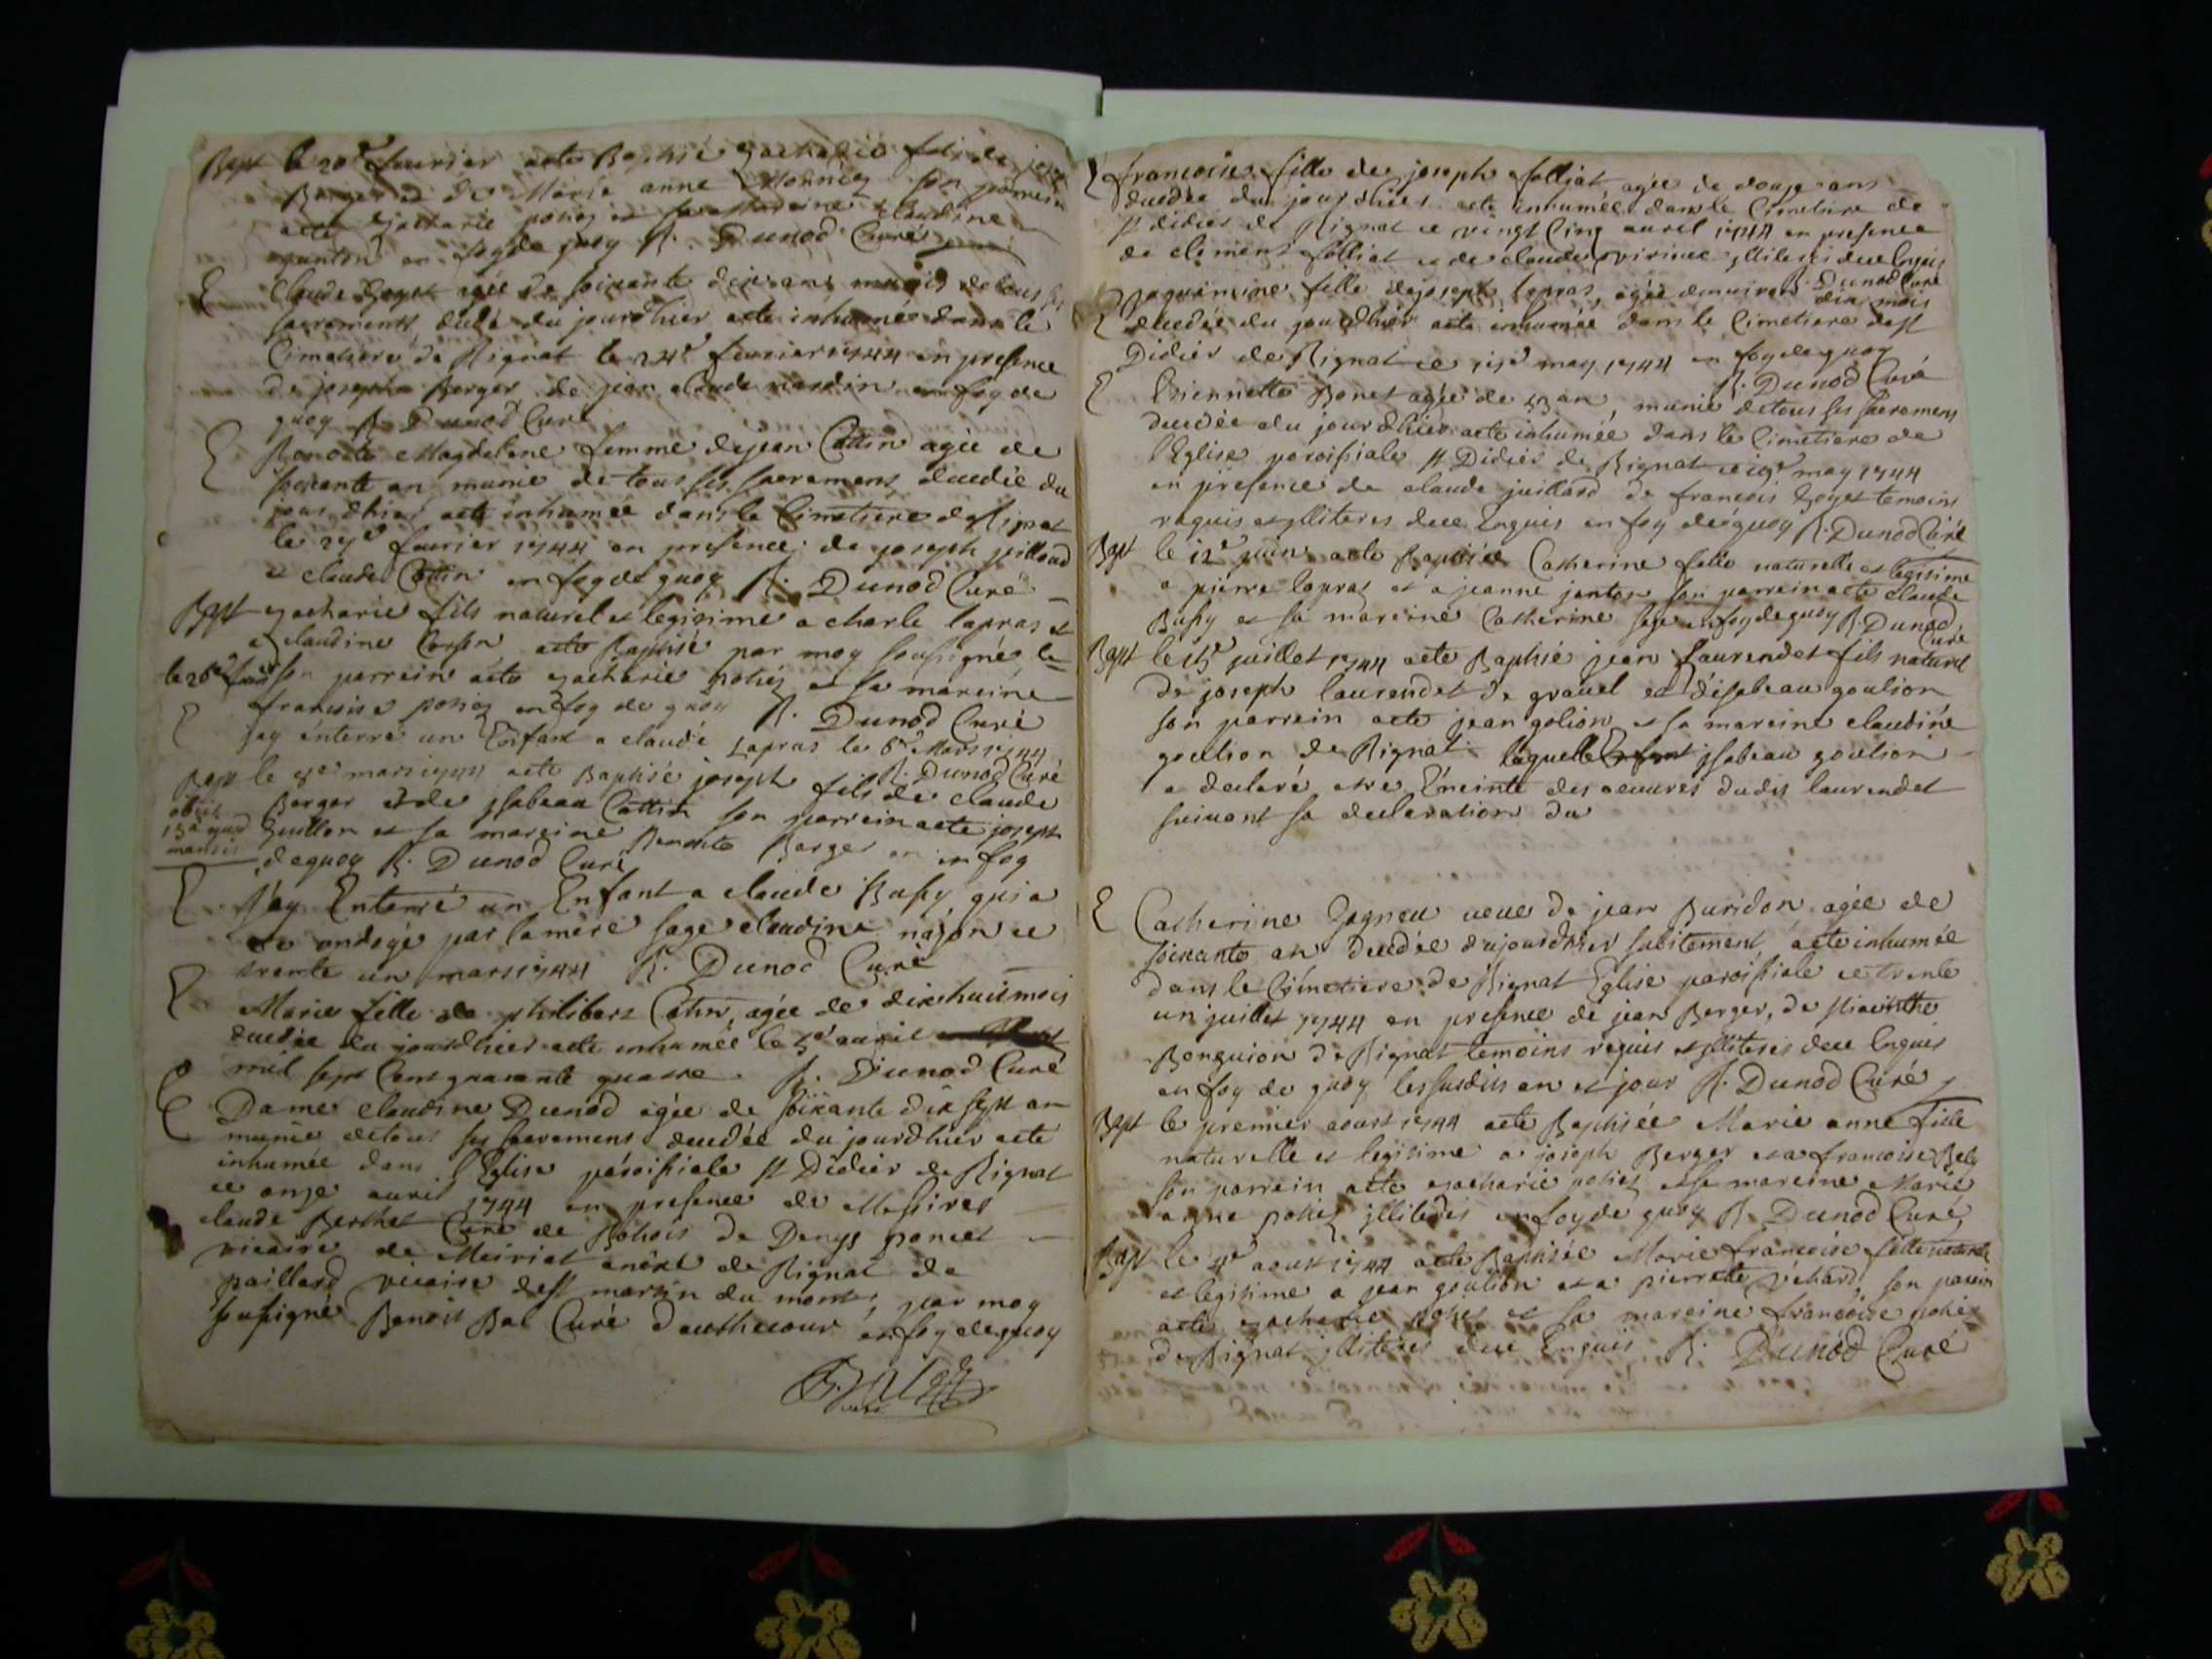 Bapt le 20e feurier acte Baptisé zacharie fils de joseph
Berger et de Marie anne Monnier son parrein
acte zacharie pohiez et sa Mareine Claudine
en foy de quoy R. Dunod Curé
E Claude Goyet agée de soixante dix ans munis de tous ses
sacrements decedé du jourdhier acte inhumé dans le
Cimetiere de Rignat le 24e feurier 1744 en presence
de joseph Berger de jean claude nardin en foy de
quoy R Dunod Curé
E Benoite Magdelene femme de jean Cottin agée de
soixante an munie de tous ses sacremens decedée du
jour dhier acte inhumée dans le Cimetiere de Rignat
le 27e feurier 1744 en presence de joseph juilland
et claude Cottin en foy de quoy R. Dunod Curé
Bapt zacharie fils naturel et legitime a charle lapras et
a claudine acte Baptisé par moy soussigné le
le 28e son parrein acte zacharie pohiez et sa mareine
francoise pohiez en foy de quoy R. Dunod Curé
E jay énterré un Enfant a claude Lapras le 6e Mars 1744
R. Dunod Curé
Bapt le mars 1744 acte Baptisé joseph fils de claude
obiit Berger et de jsabeau Cottin son parrein acte joseph
Guillon et sa mareine Benoite Berger en foy
de quoy R. Dunod Curé
E J'ay Enterré un Enfant a claude Bussy qui a
ete ondoyé par la mere sage claudine ce
trente un mars 1744 R. Dunod Curé
E Marie fille de philibert Cottin, agée de dix huit mois
decedée du jourdhier acte inhumée le 5e auril
mil sept Cent quarante quatre R. Dunod Curé
E Dame claudine Dunod agée de soixante dix sept an
munie de tous ses sacremens decedée du jourdhier acte
inhumée dans l'Eglise paroissiale st Didier de Rignat
ce onze auril 1744 en presence de Messires
claude Berthet Curé de Bohas de Denys poncet
vicaire de Meiriat anexe de Rignat de
paillard vicaire de st martin du mont, par moy
soussigné Benoit Curé en foy de quoy
E francoise fille de joseph folliat, agée de douze ans
decedée du jour dhier acte inhumée dans le Cimetiere de
st didier de Rignat ce vingt Cinq auril 1744 en presence
de clement folliat et de claude jlliteres deue Enquis
R. Dunod Curé
E jaquemine fille de joseph lapras, agée denuiron dix mois
decedée du jourdhier acte inhumée dans le Cimetiere de st
Didier de Rignat ce may 1744 en foy de quoy
R. Dunod Curé
E Etiennette Bonet agée de 53 an, munie de tous ses sacremens
decedée du jour dhier acte inhumée dans le Cimetiere de
l'Eglise paroissiale st Didier de Rignat ce 19e may 1744
en presence de claude juillard de francois Goyet temoins
requis et jlliteres deue Enquis en foy de quoy R. Dunod Curé
Bapt le 12e juin acte Baptisée Catherine fille naturelle et legitime
a pierre lapras et a jeanne janton son parrein acte claude
Bussy et sa mareine Catherine en foy de quoy R. Dunod
Curé
Bapt le 15e juillet 1744 acte Baptisé jean Laurendet fils naturel
de joseph laurendet de grauel et d'isabeau goulion
son parrein acte jean golion et sa mareine claudine
goulion de Rignat laquelle jsabeau goulion
a declaré etre Enceinte des oeuures dudit laurendet
suiuant sa declaration du
E Catherine Jagneu veue de jean Buridon agée de
soixante an decedée dujourdhier subitement, acte inhumée
dans le Cimetiere de Rignat Eglise paroissiale ce trente
un juillet 1744 en presence de jean Berger, de hiacinthe
Bonguion de Rignat temoins requis et jlliteres deue Enquis
en foy de quoy les susdits an et jour R. Dunod Curé
Bapt le premier aoust 1744 acte Baptisée Marie anne fille
naturelle et legitime a joseph Berger et a francoise
son parrein acte zacharie pohiez et sa mareine Marie
anne pohiez jlliteres en foy de quoy R Dunod Curé
Bapt le 4e aoust 1744 acte Baptisée Marie francoise fille naturelle
et legitime a jean goulion et a pierrette son parrein
acte zacharie pohiez et sa mareine francoise pohiez
de Rignat jlliteres deue Enquis R. Dunod Curé